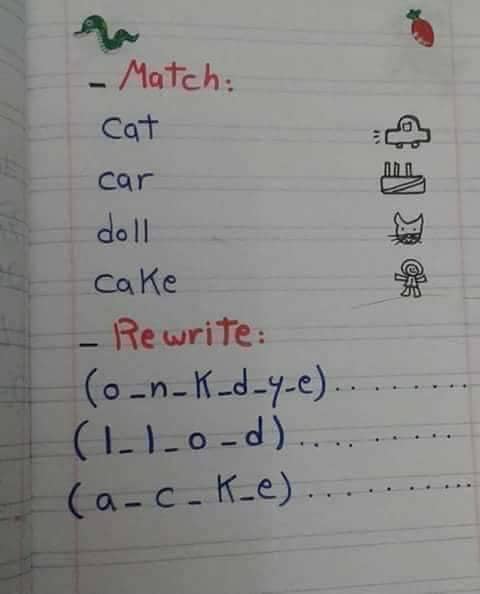 - Match:
cat
car
doll
cake
- Rewrite:
(o-n-k-d-y-e)..........
(l-l-o-d)..........
(a-c-k-e)..........